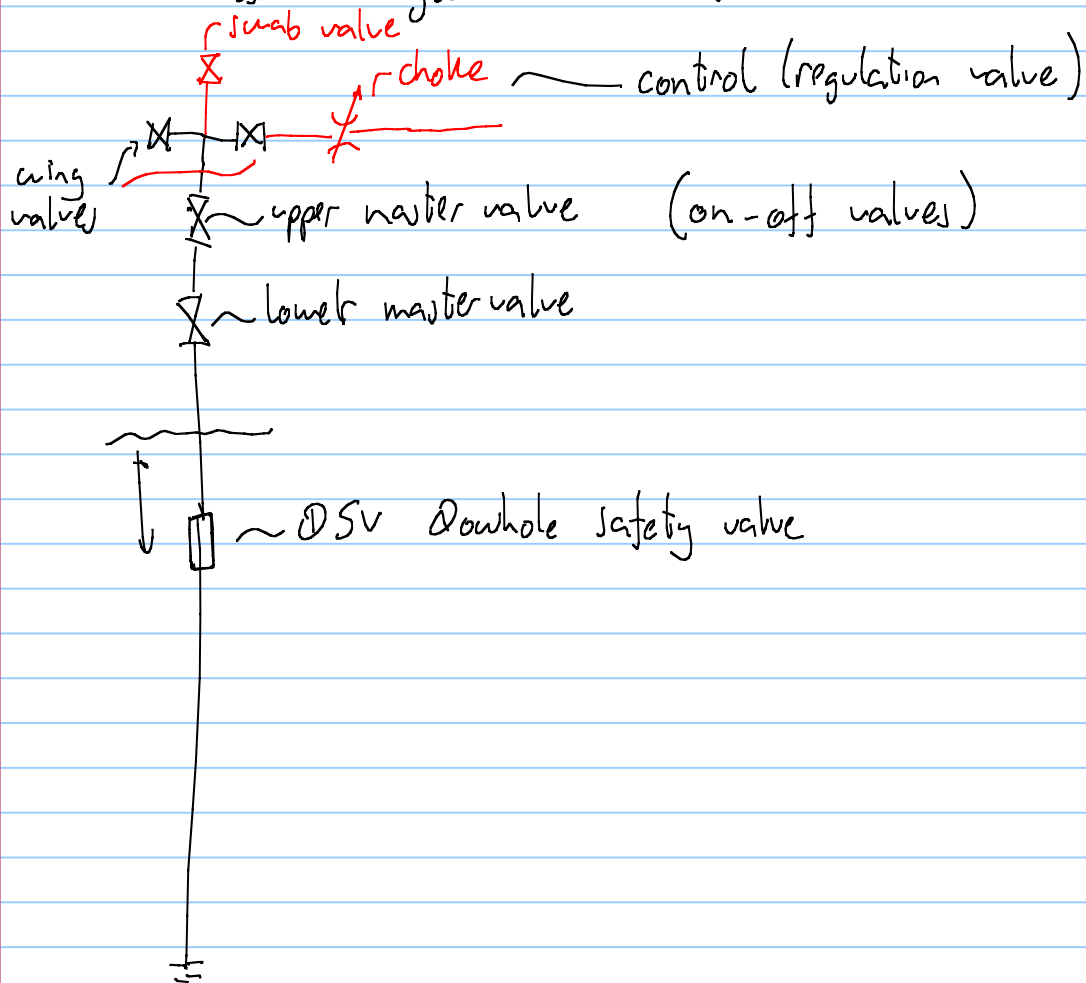 swab valve
choke
control (regulation valve)
wing
valves
upper master valve
(on-off valves)
lower master valve
DSV Dowhole safety valve